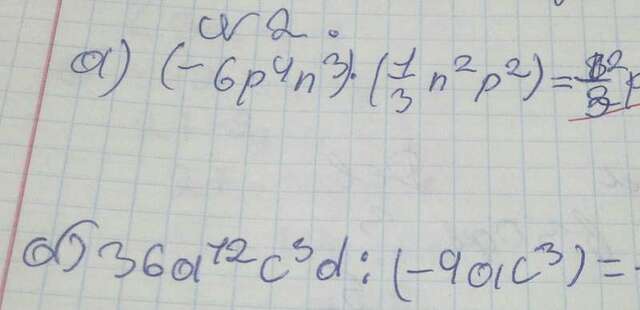 №2.
а) (-6p⁴n³)·(1/3 n²p²)=
б) 36a¹²c³d:(-9ac³)=